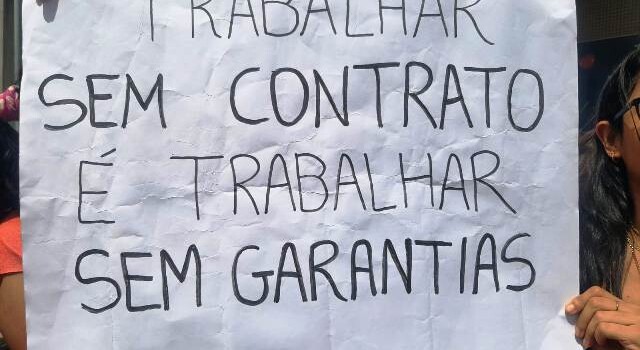 TRABALHAR
SEM CONTRATO
É TRABALHAR
SEM GARANTIAS